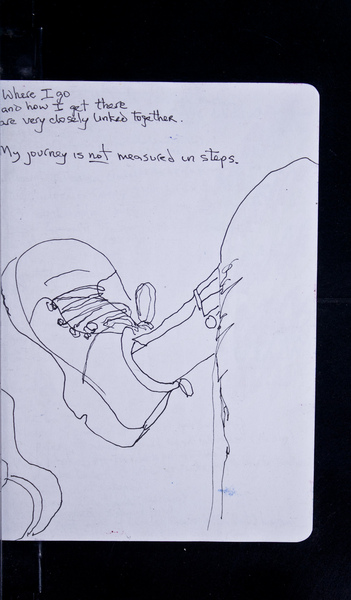 Where I go
and how I get there
are very closely linked together.
My journey is not measured in steps.